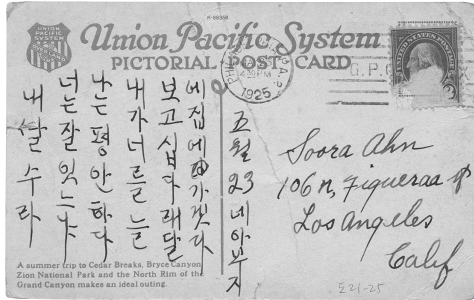 A-98359
UNION
PACIFIC
SYSTEM
Union Pacific System
PICTORIAL POST CARD
1925
UNITED STATES POSTAGE
G.P.O.
내 딸 수라
너는 잘 잇느냐
나는 평안하다
내가 너를 늘
보고 십다 래달
에 집에 가겟다
五월 23 네 아부지
Soora Ahn
106 N, Figueroa St
Los Angeles
Calif
A summer trip to Cedar Breaks, Bryce Canyon,
Zion National Park and the North Rim of the
Grand Canyon makes an ideal outing.
도21-25